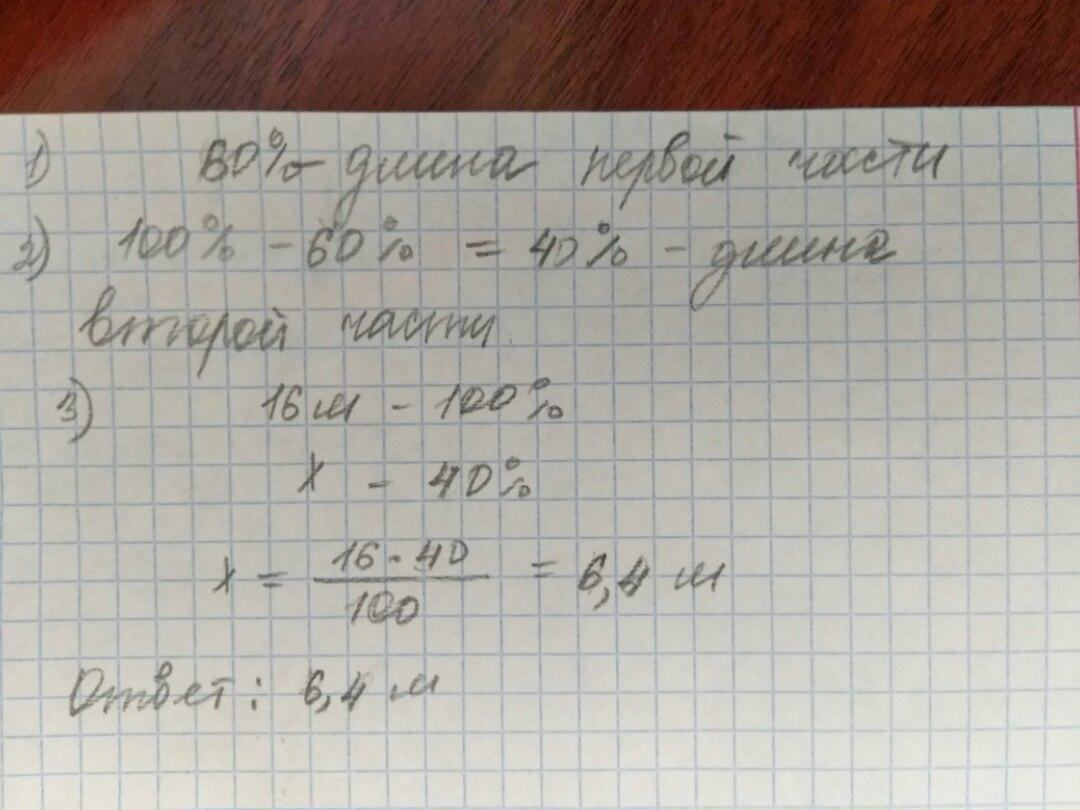 1) 60% длина первой части
2) 100% - 60% = 40% - длина
второй части
3) 16 м - 100%
x - 40%
x = 16 · 40 / 100 = 6,4 м
Ответ: 6,4 м